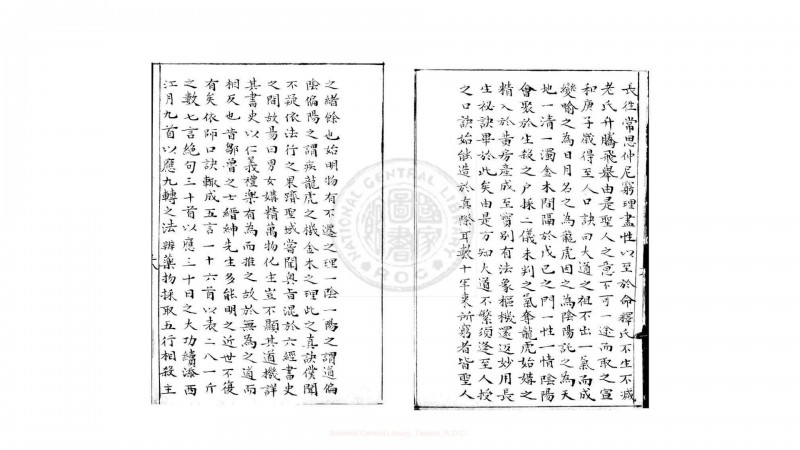 長往常思仲尼窮理盡性以至於命釋氏不生不滅
老氏升騰飛舉由是聖人之意不可一途而取之宣
和庚子歲得至人口訣曰大道之祖不出一氣而成
變喻之為日月名之為龍虎因之為陰陽託之為天
地一清一濁金木間隔於戊己之門一性一情陰陽
會聚於生殺之戶採二儀未判之氣奪龍虎始媾之
精入於黃房產成至寶別有法象樞機還返妙用長
生秘訣畢於此矣由是方知大道不繁須遂至人授
之口訣始能造於真際耳數十年來所窮者皆聖人
之緒餘也始明物有不遷之理一陰一陽之謂道偏
陰偏陽之謂疾龍虎之機金木之理此之真訣僕聞
不疑依法行之果躋聖域當聞奧旨混於六經書史
之間故易曰男女媾精萬物化生豈不顯其道機詳
其書史以仁義禮樂有為而推之故於無為之道而
相反也昔鄒魯之士縉紳先生多能明之近世不復
有矣依師口訣輒成五言一十六首以表二八一斤
之數七言絕句三十首以應三十日之大功續添西
江月九首以應九轉之法辨藥物採取五行相殺主
NATIONAL CENTRAL LIBRARY
R.O.C.
國家圖書館
National Central Library, Taiwan, R.O.C.